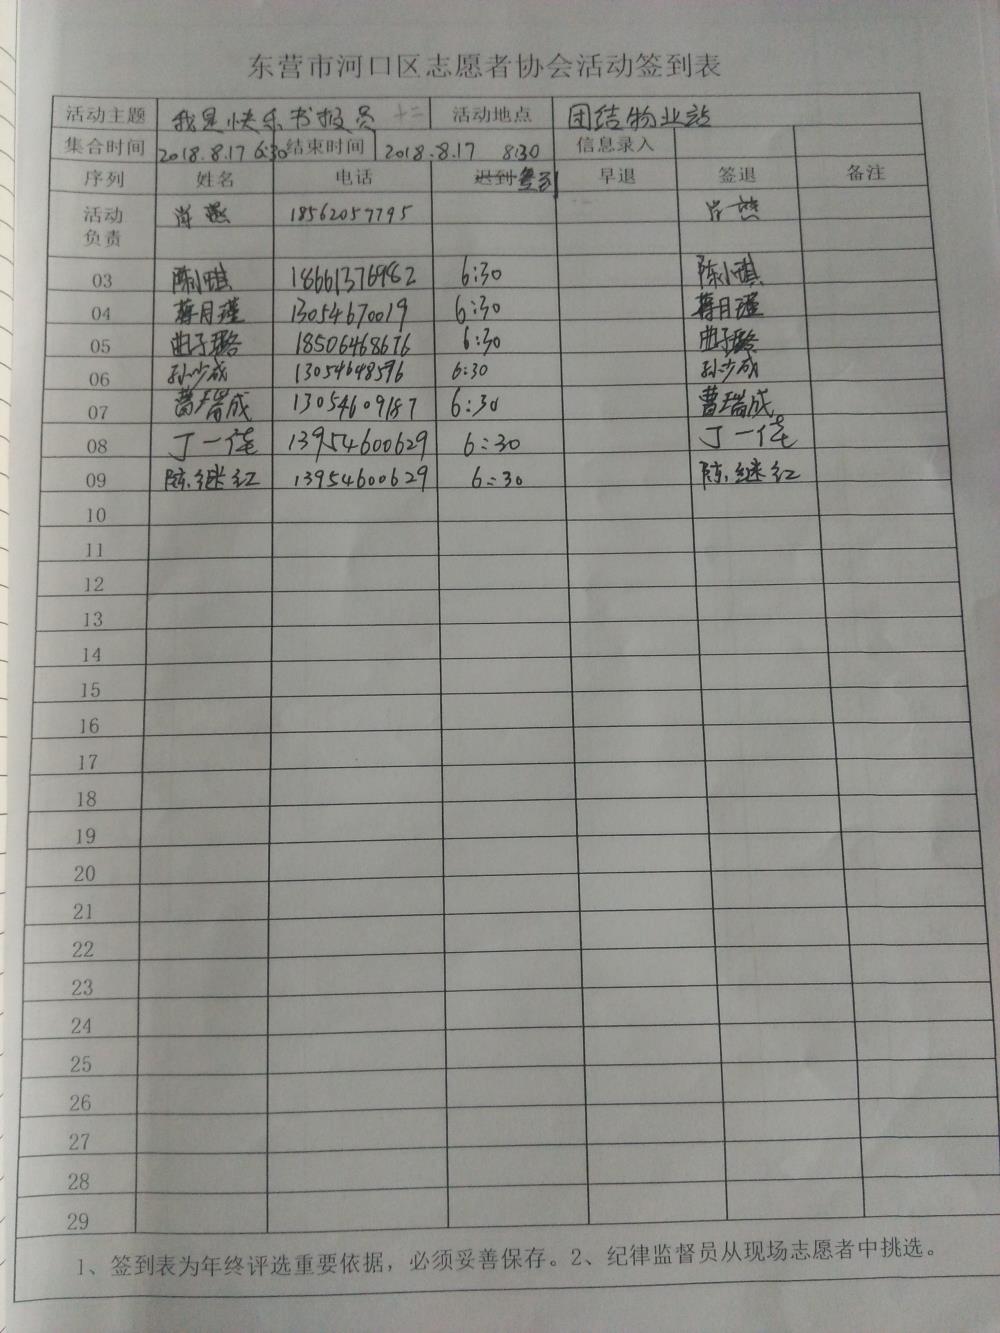 东营市河口区志愿者协会活动签到表
活动主题 我是快乐书报员 十二 活动地点 团结物业站
集合时间 2018.8.17 6:30 结束时间 2018.8.17 8:30 信息录入
序列 姓名 电话 迟到 签到 早退 签退 备注
活动 肖燕 18562057795 肖燕
负责
03 陈小琪 18661376982 6:30 陈小琪
04 蒋月瑾 13054670019 6:30 蒋月瑾
05 曲子璐 18506468676 6:30 曲子璐
06 孙少成 13054648596 6:30 孙少成
07 曹瑞成 13054609187 6:30 曹瑞成
08 丁一佳 13954600629 6:30 丁一佳
09 陈继红 13954600629 6:30 陈继红
10
11
12
13
14
15
16
17
18
19
20
21
22
23
24
25
26
27
28
29
1、签到表为年终评选重要依据，必须妥善保存。2、纪律监督员从现场志愿者中挑选。